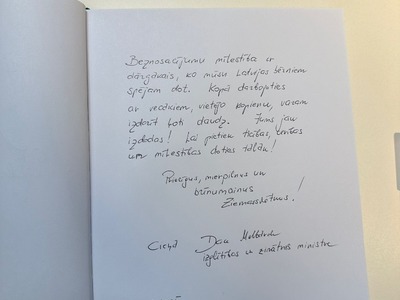 Beznosacījumu mīlestība ir
dārgākais, ko mūsu Latvijas bērniem
spējam dot. Kopā darbojoties
ar vecākiem, vietējo kopienu, varam
izdarīt ļoti daudz. Jums jau
izdodas! Lai pietiek ticības, cerības
un mīlestības doties tālāk!
Priecīgus, mierpilnus un
brīnumainus
Ziemassvētkus!
Cieņā
izglītības un zinātnes ministre